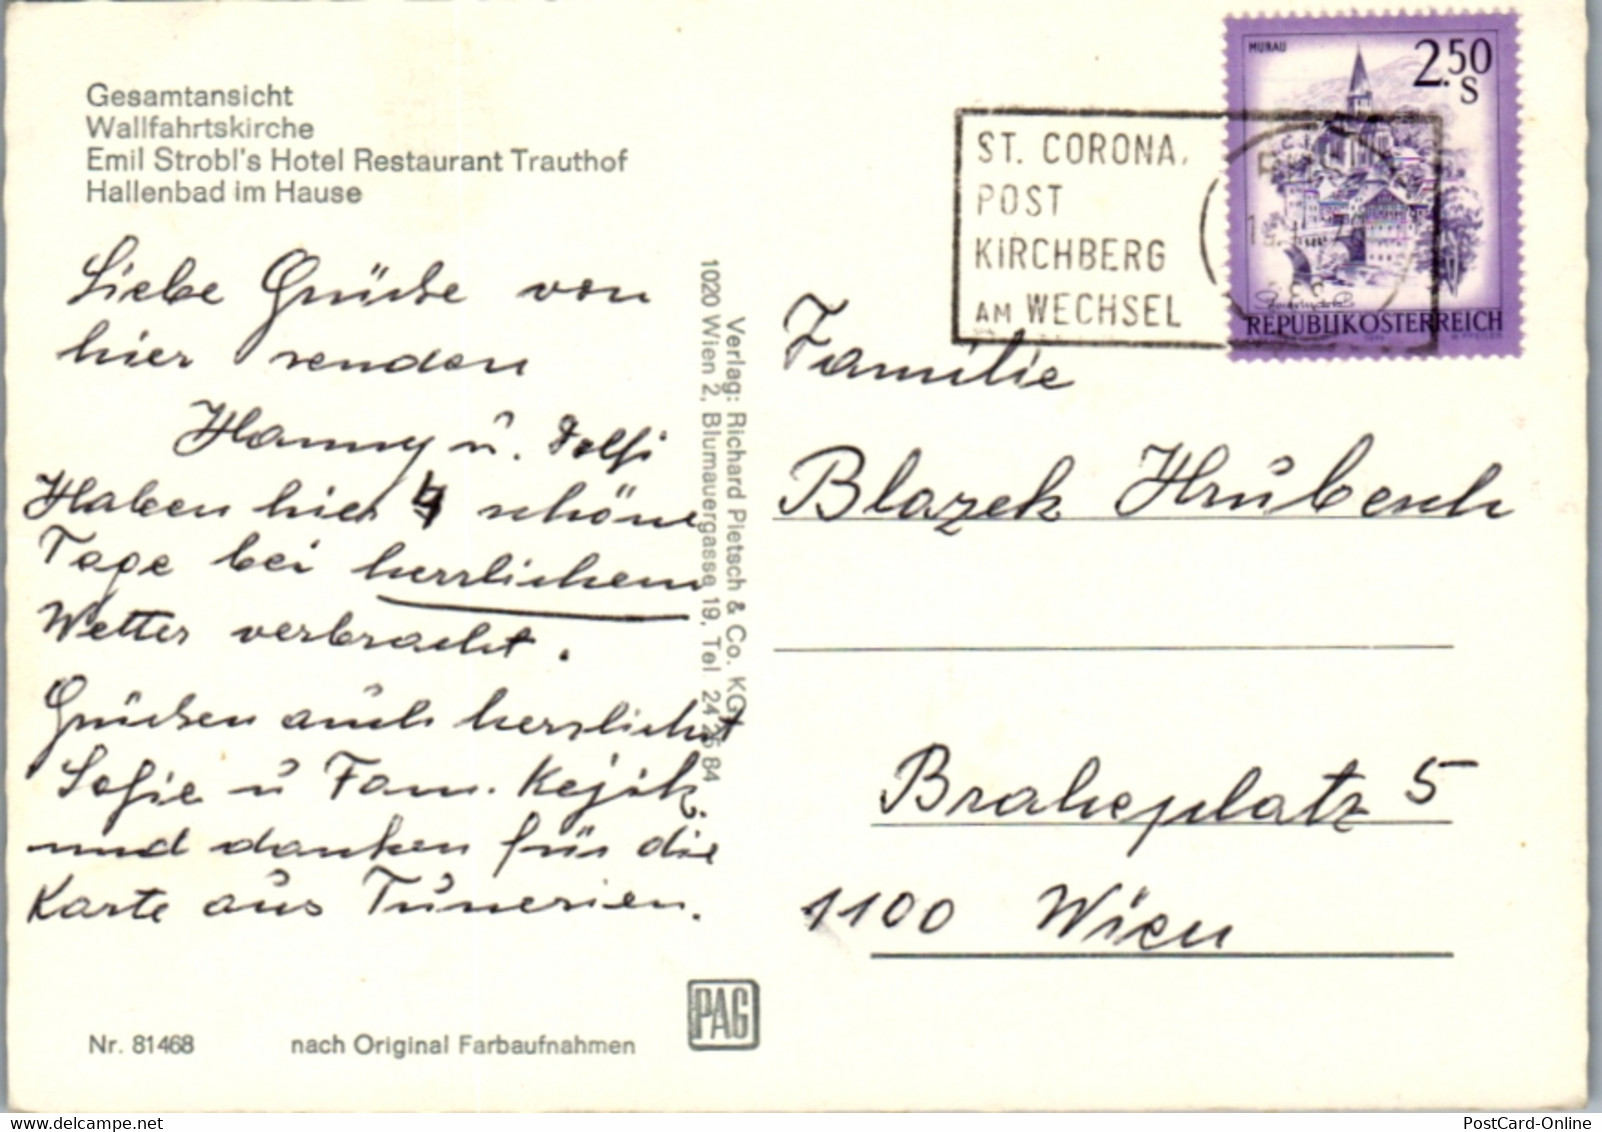 Gesamtansicht
Wallfahrtskirche
Emil Strobl's Hotel Restaurant Trauthof
Hallenbad im Hause
Liebe Grüße von
hier senden
Hanny u.
Haben hier 4 schöne
Tage bei herrlichem
Wetter verbracht.
Grüßen auch herzlichst
Sofie u Fam. Kejik.
und danken für die
Karte aus Tunesien.
Nr. 81468 nach Original Farbaufnahmen
PAG
Verlag: Richard Pietsch & Co. KG,
1020 Wien 2, Blumauergasse 19, Tel. 24 26 84
ST. CORONA,
POST
KIRCHBERG
AM WECHSEL
MURAU
2.50
S
REPUBLIK ÖSTERREICH
Familie
Blazek Hrubesch
Braheplatz 5
1100 Wien
PostCard-Online